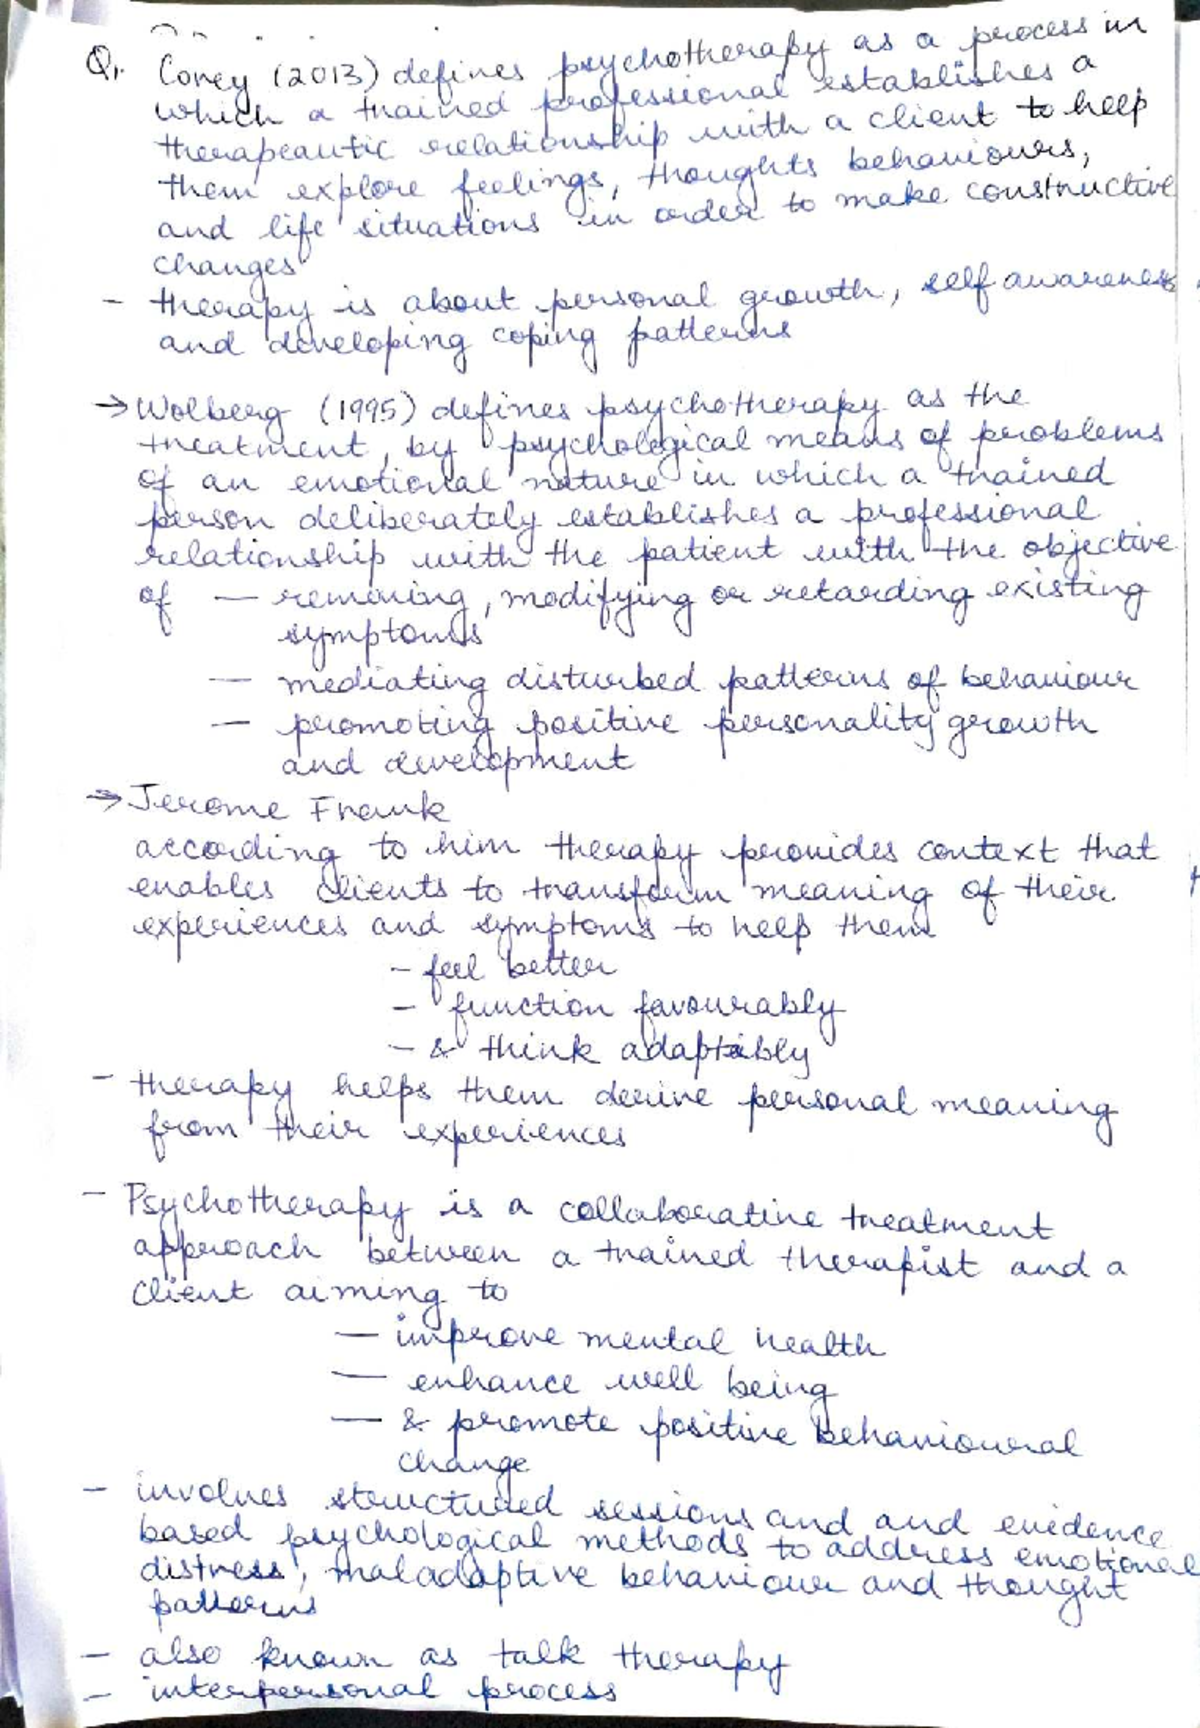 Q1. Corey (2013) defines psychotherapy as a process in
which a trained professional establishes a
therapeautic relationship with a client to help
them explore feelings, thoughts behaviours,
and life situations in order to make constructive
changes
- therapy is about personal growth, self awareness
and developing coping patterns
→ Wolberg (1995) defines psychotherapy as the
treatment, by psychological means of problems
of an emotional nature in which a trained
person deliberately establishes a professional
relationship with the patient with the objective
of — removing, modifying or retarding existing
symptoms
— mediating disturbed patterns of behaviour
— promoting positive personality growth
and development
→ Jerome Frank
according to him therapy provides context that
enables clients to transform meaning of their
experiences and symptoms to help them
- feel better
- function favourably
- & think adaptably
- therapy helps them derive personal meaning
from their experiences
- Psychotherapy is a collaborative treatment
approach between a trained therapist and a
client aiming to
— improve mental health
— enhance well being
— & promote positive behavioural
change
- involves structured sessions and and evidence
based psychological methods to address emotional
distress, maladaptive behaviour and thought
patterns
- also known as talk therapy
- interpersonal process